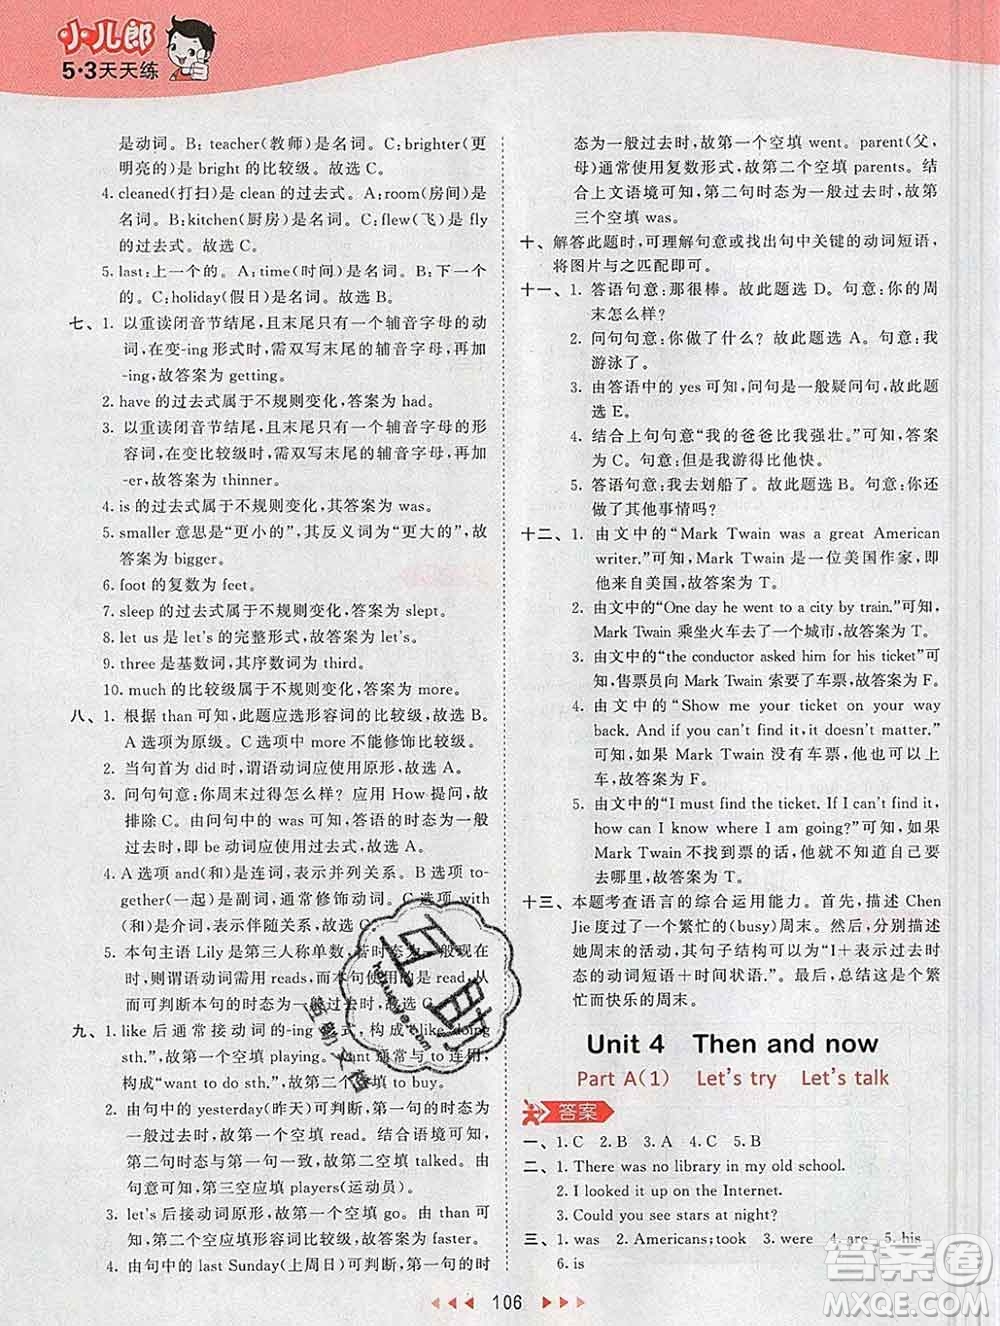 小儿郎
5·3天天练
是动词。B: teacher(教师)是名词。C:brighter(更
明亮的)是 bright 的比较级。故选 C。
4. cleaned(打扫)是 clean 的过去式。A:room(房间)是
名词。B:kitchen(厨房)是名词。C:flew(飞)是 fly
的过去式。故选 C。
5. last:上一个的。A:time(时间)是名词。B:下一个
的。C:holiday(假日)是名词。故选 B。
七、1. 以重读闭音节结尾,且末尾只有一个辅音字母的动
词,在变-ing 形式时,需双写末尾的辅音字母,再加
-ing,故答案为 getting。
2. have 的过去式属于不规则变化,答案为 had。
3. 以重读闭音节结尾,且末尾只有一个辅音字母的形
容词,在变比较级时,需双写末尾的辅音字母,再加
-er,故答案为 thinner。
4. is 的过去式属于不规则变化,其答案为 was。
5. smaller 意思是“更小的”,其反义词为“更大的”,故
答案为 bigger。
6. foot 的复数为 feet。
7. sleep 的过去式属于不规则变化,答案为 slept。
8. let us 是 let's 的完整形式,故答案为 let's。
9. three 是基数词,其序数词为 third。
10. much 的比较级属于不规则变化,答案为 more。
八、1. 根据 than 可知,此题应选形容词的比较级,故选 B。
A 选项为原级。C 选项中 more 不能修饰比较级。
2. 当句首为 did 时,谓语动词应使用原形,故选 A。
3. 问句句意:你周末过得怎么样? 应用 How 提问,故
排除 C。由问句中的 was 可知,答语的时态为一般
过去时,即 be 动词应使用过去式,故选 A。
4. A 选项 and(和)是连词,表示并列关系。B 选项 to-
gether(一起)是副词,通常修饰动词。C 选项 with
(和)是介词,表示伴随关系,故选 A。
5. 本句主语 Lily 是第三人称单数,若时态为一般现在
时,则谓语动词需用 reads,而本句使用的是 read,从
而可判断本句的时态为一般过去时,故选 C。
九、1. like 后通常接动词的-ing 形式,构成“like doing
sth.”,故第一个空填 playing。want 常与 to 连用,
构成“want to do sth.”,故第二个空填 to buy。
2. 由句中的 yesterday(昨天)可判断,第一句的时态为
一般过去时,故第一个空填 read。结合语境可知,
第二句时态与第一句一致,故第二个空填 talked。由
句意可知,第三空应填 players(运动员)。
3. let's 后接动词原形,故第一个空填 go。由 than 可
知,第二个空应填形容词比较级,故答案为 faster。
4. 由句中的 last Sunday(上周日)可判断,第一句的时
态为一般过去时,故第一个空填 went。parent(父,
母)通常使用复数形式,故第二个空填 parents。结
合上文语境可知,第二句时态为一般过去时,故第
三个空填 was。
十、解答此题时,可理解句意或找出句中关键的动词短语,
将图片与之匹配即可。
十一、1. 答语句意:那很棒。故此题选 D。句意:你的周
末怎么样?
2. 问句句意:你做了什么? 故此题选 A。句意:我
游泳了。
3. 由答语中的 yes 可知,问句是一般疑问句,故此题
选 E。
4. 结合上句句意“我的爸爸比我强壮。”可知,答案
为 C。句意:但是我游得比他快。
5. 答语句意:我去划船了。故此题选 B。句意:你还
做了其他事情吗?
十二、1. 由文中的“Mark Twain was a great American
writer.”可知,Mark Twain 是一位美国作家,即
他来自美国,故答案为 T。
2. 由文中的“One day he went to a city by train.”可知,
Mark Twain 乘坐火车去了一个城市,故答案为 T。
3. 由文中的“the conductor asked him for his ticket”可
知,售票员向 Mark Twain 索要了车票,故答案为 F。
4. 由文中的“Show me your ticket on your way
back. And if you can't find it,it doesn't matter.”
可知,如果 Mark Twain 没有车票,他也可以乘
车,故答案为 F。
5. 由文中的“I must find the ticket. If I can't find it,
how can I know where I am going?”可知,如果
Mark Twain 不找到票的话,他就不知道自己要去
去哪里,故答案为 T。
十三、本题考查语言的综合运用能力。首先,描述 Chen
Jie 度过了一个繁忙的(busy)周末。然后,分别描述
她周末的活动,其句子结构可以为“I+表示过去时
态的动词短语+时间状语。”。最后,总结这是个繁
忙而快乐的周末。
Unit 4 Then and now
Part A(1) Let's try Let's talk
答案
一、1. C 2. B 3. A 4. C 5. B
二、1. There was no library in my old school.
2. I looked it up on the Internet.
3. Could you see stars at night?
三、1. was 2. Americans;took 3. were 4. are 5. his
6. is
106
答案圈
MXQE.COM